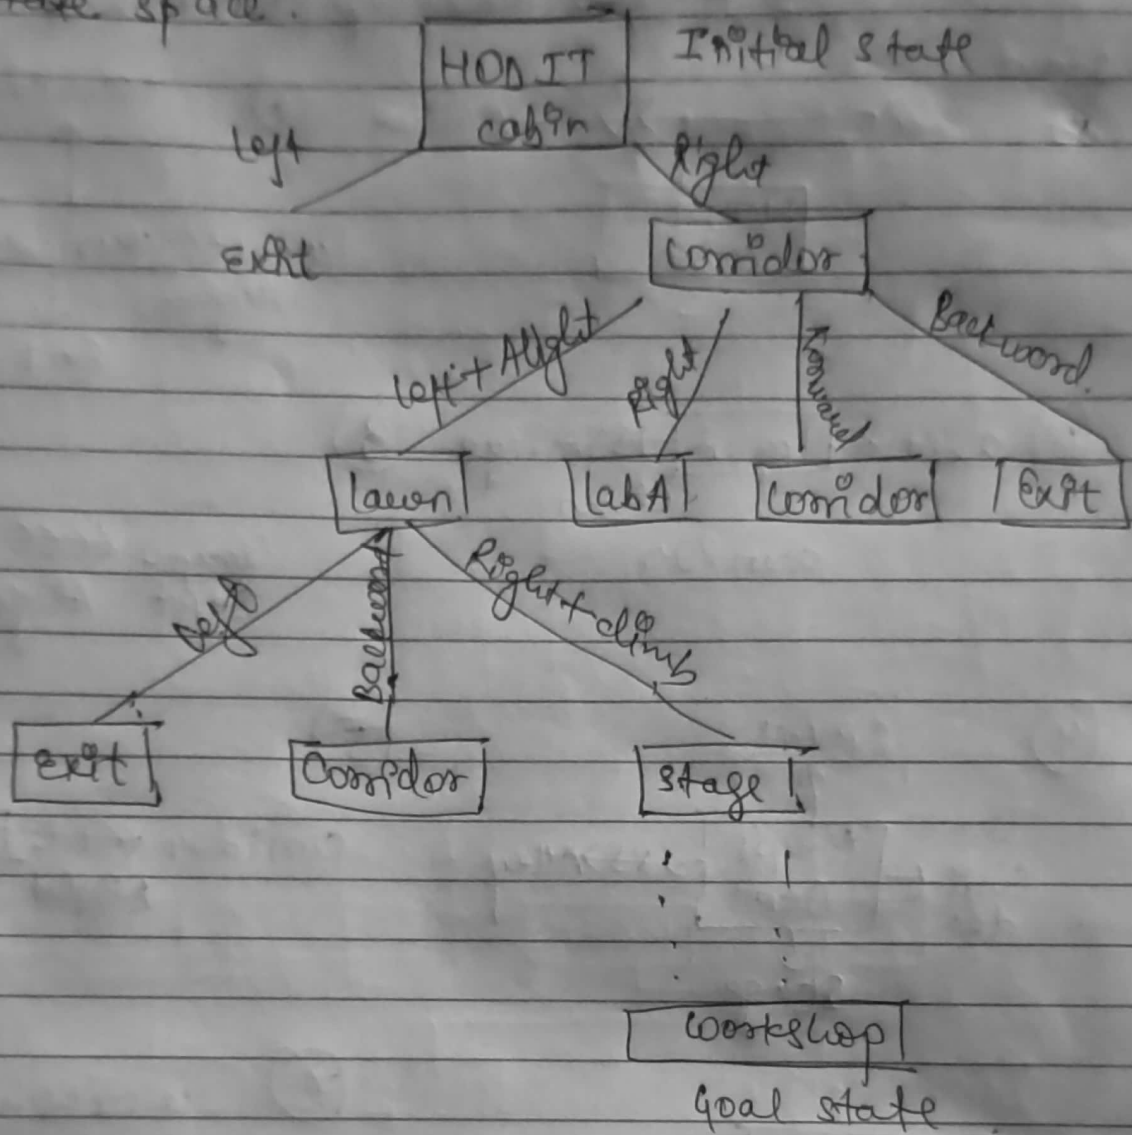 state space.
HOD IT
cabin
Initial state
Left
Right
Exit
Corridor
Left + Alight
Right
Forward
Backward
Lawn
Lab A
Corridor
Exit
Left
Backward
Right + climb
Exit
Corridor
Stage
Workshop
Goal state